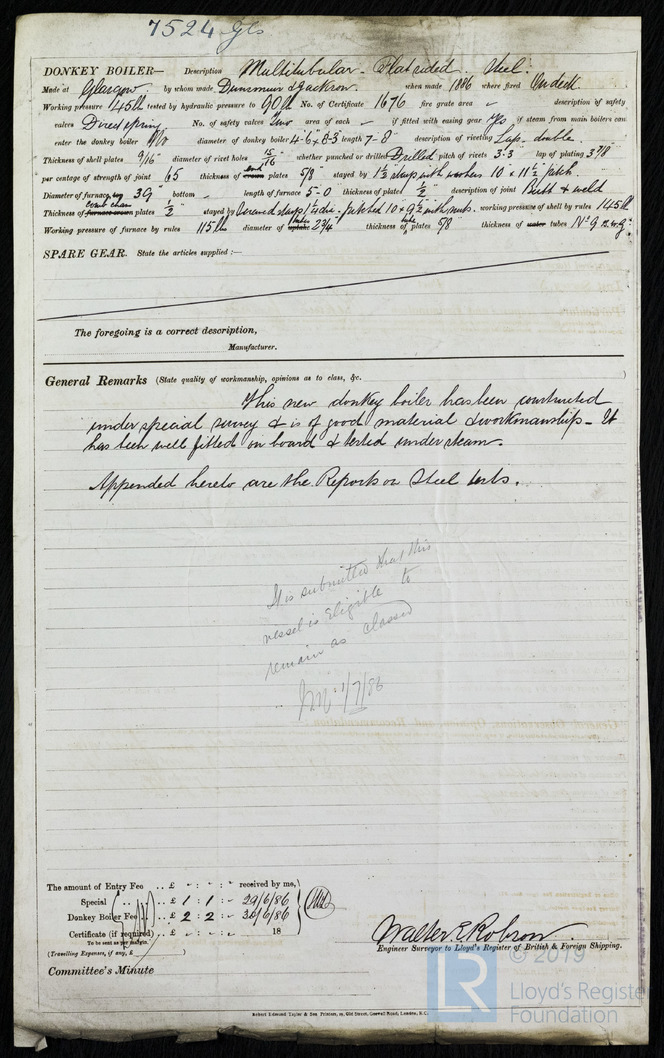 7524 Gls
DONKEY BOILER— Description Multitubular - Flat sided. Steel.
Made at Glasgow. by whom made Dunsmuir & Jackson. when made 1886 where fixed On deck
Working pressure 145 lb tested by hydraulic pressure to 90 lb No. of Certificate 1676 fire grate area description of safety
valves Direct spring No. of safety valves Two area of each if fitted with easing gear Yes if steam from main boilers can
enter the donkey boiler No diameter of donkey boiler 4-6 x 8-3 length 7-8" description of riveting Lap - double
Thickness of shell plates 9/16" diameter of rivet holes 15/16" whether punched or drilled Drilled pitch of rivets 3.3 lap of plating 3 7/8"
per centage of strength of joint 65 thickness of end crown plates 5/8 stayed by 1 1/2 stays with washers 10 x 11 1/2 pitch.
Diameter of furnace, top 39" bottom length of furnace 5-0 thickness of plates 1/2" description of joint Butt & weld
Thickness of comb cham furnace crown plates 1/2 stayed by Screwed stays 1 1/4 dia. pitched 10 x 9 1/2 with nuts. working pressure of shell by rules 145 lb
Working pressure of furnace by rules 115 lb diameter of uptake tubes 2 3/4 thickness of tube plates 5/8 thickness of water tubes No 9 B.W.G.
SPARE GEAR. State the articles supplied:—
The foregoing is a correct description,
Manufacturer.
General Remarks (State quality of workmanship, opinions as to class, &c. )
This new donkey boiler has been constructed
under special survey & is of good material & workmanship - It
has been well fitted on board & tested under steam.
Appended hereto are the Reports on Steel tests.
It is submitted that this
vessel is eligible to
remain as classed
1/7/86
The amount of Entry Fee .. £ " : " : " received by me,
Special .. £ 1 : 1 : " 29/6/86
Donkey Boiler Fee .. £ 2 : 2 : " 30/6/86
Certificate (if required) .. £ " : " : " 18
To be sent as per margin.
(Travelling Expenses, if any, £ )
Committee's Minute
Walter E. Robson
Engineer Surveyor to Lloyd's Register of British & Foreign Shipping.
Robert Edmund Taylor & Son Printers, 19, Old Street, Goswell Road, London, E.C.
© 2019
LR
Lloyd's Register
Foundation